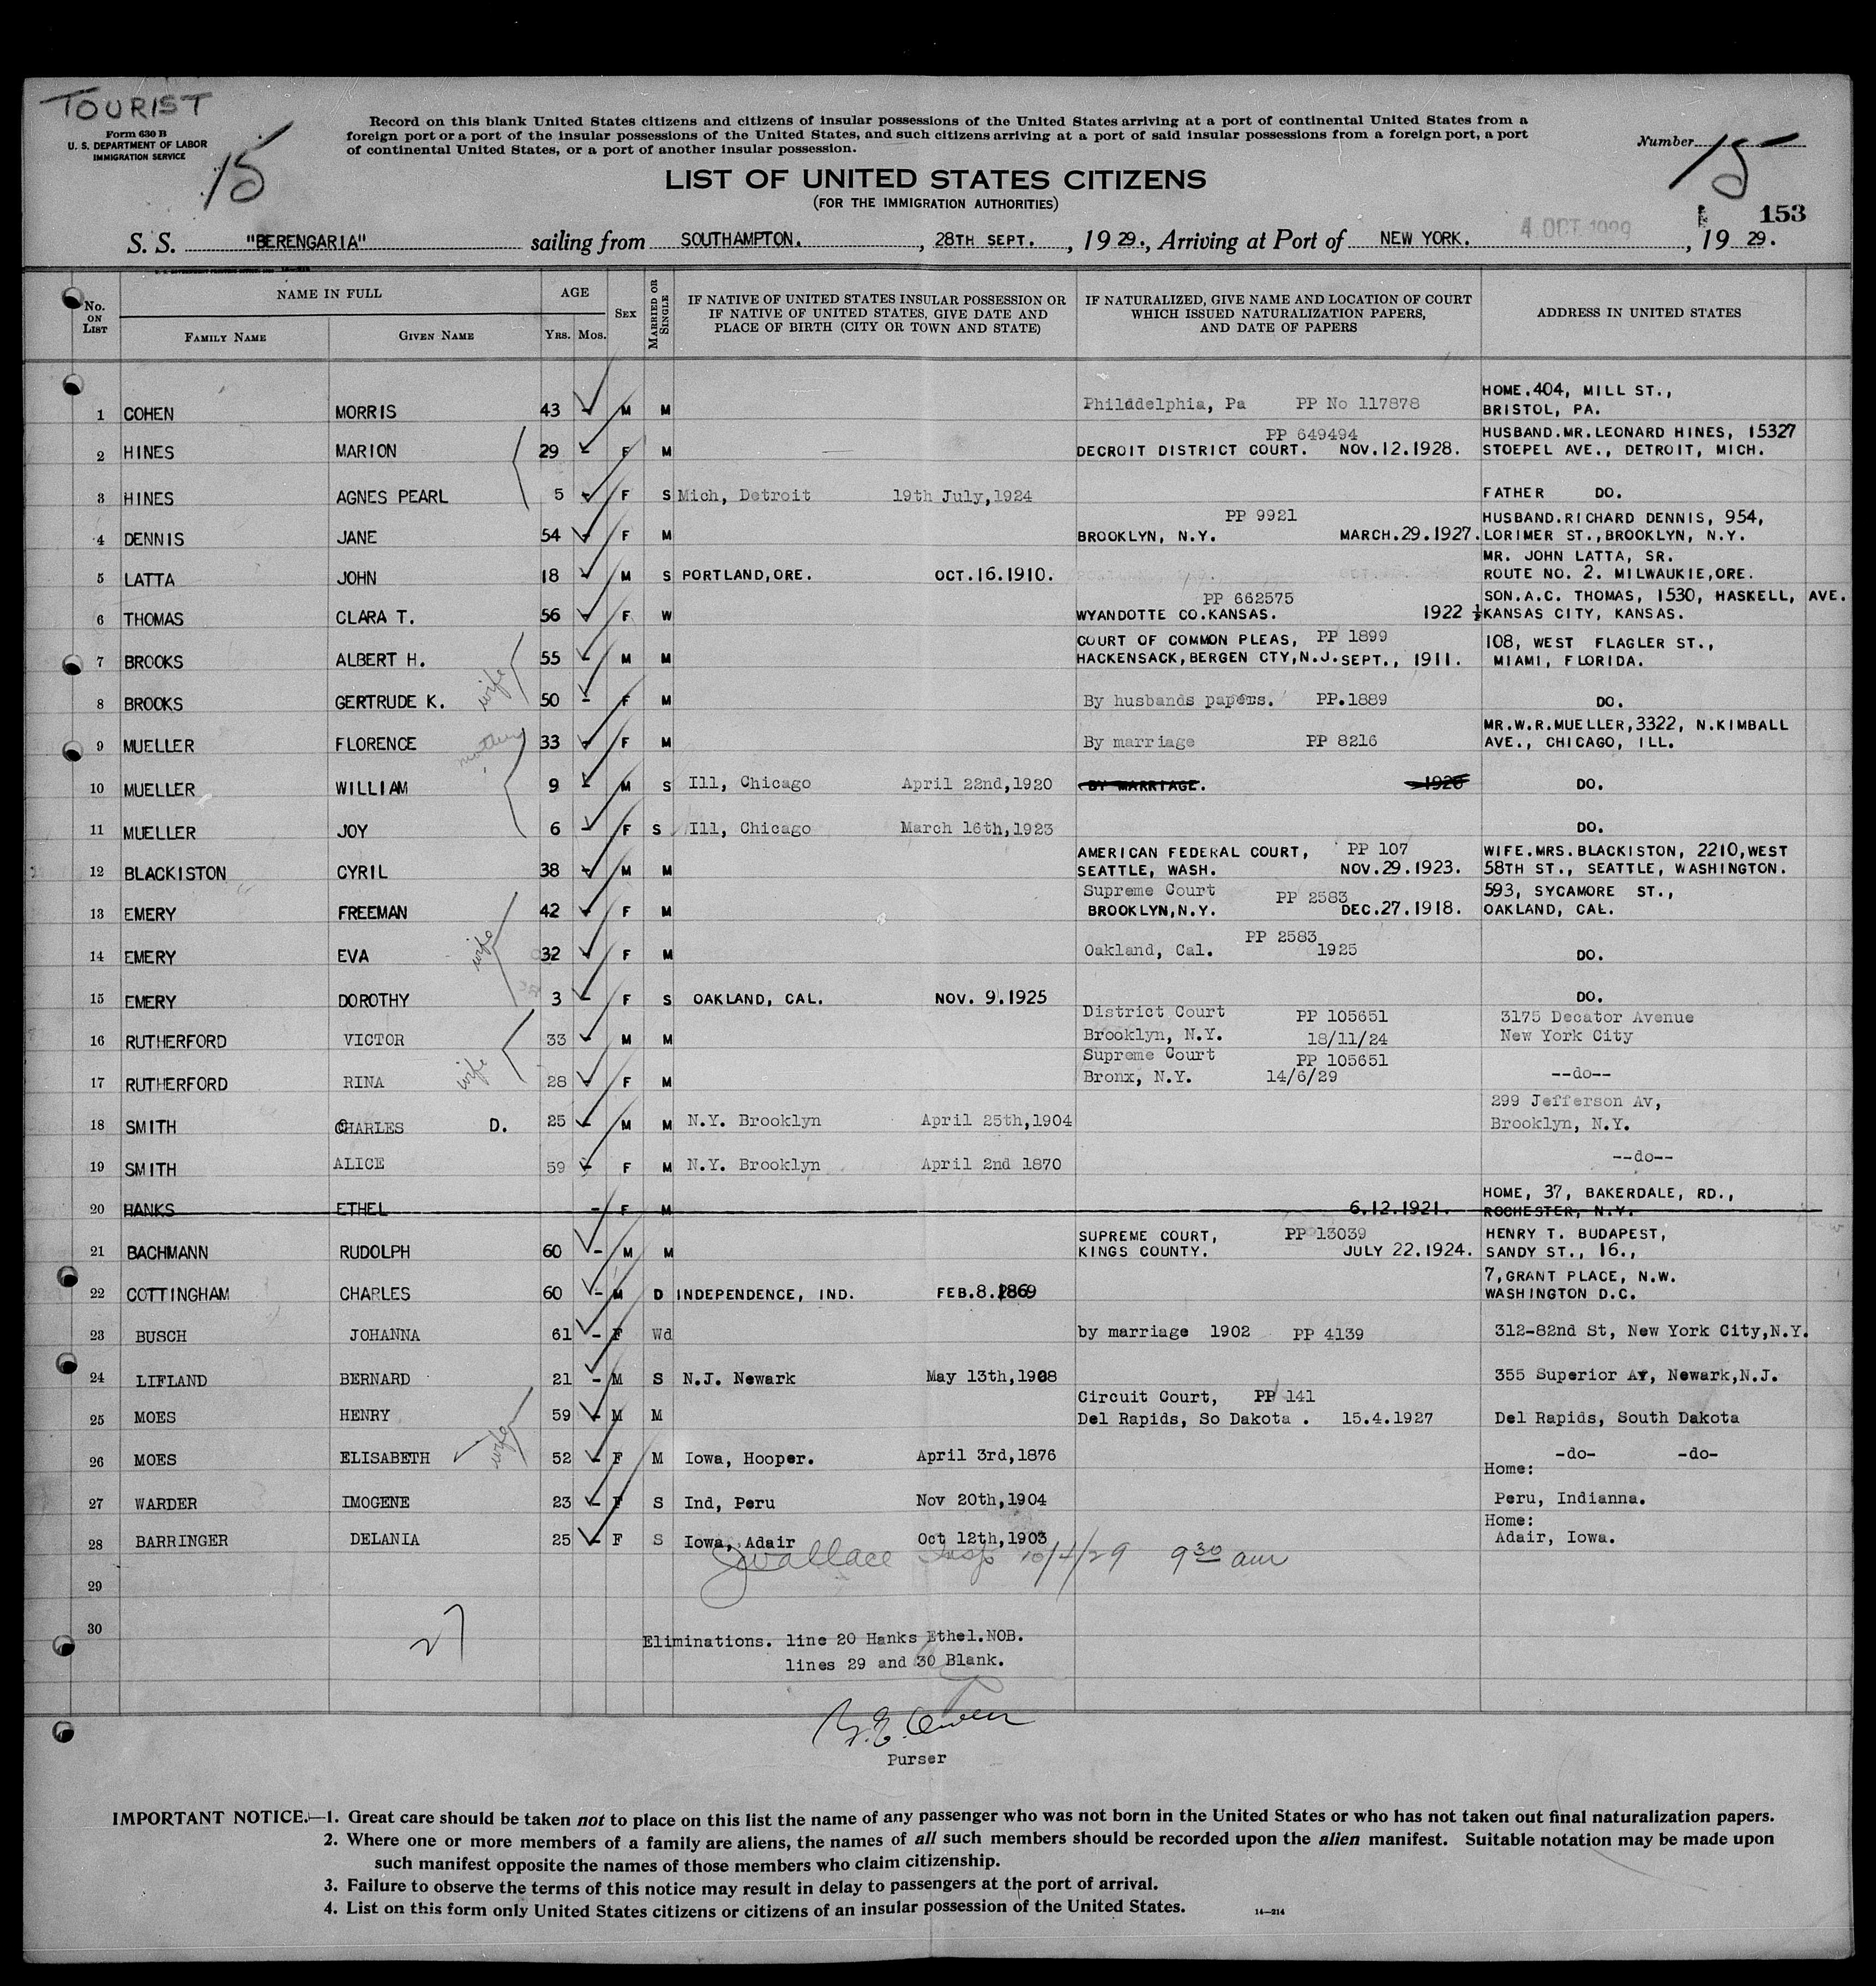 TOURIST
Form 630 B
U. S. DEPARTMENT OF LABOR
IMMIGRATION SERVICE
15
Record on this blank United States citizens and citizens of insular possessions of the United States arriving at a port of continental United States from a
foreign port or a port of the insular possessions of the United States, and such citizens arriving at a port of said insular possessions from a foreign port, a port
of continental United States, or a port of another insular possession.
Number 15
LIST OF UNITED STATES CITIZENS
(FOR THE IMMIGRATION AUTHORITIES)
153
S. S. "BERENGARIA" sailing from SOUTHAMPTON. , 28TH SEPT. , 19 29., Arriving at Port of NEW YORK. 4 OCT 1929 , 19 29.
No. ON LIST
NAME IN FULL
FAMILY NAME
GIVEN NAME
AGE
YRS. MOS.
SEX
MARRIED OR SINGLE
IF NATIVE OF UNITED STATES INSULAR POSSESSION OR
IF NATIVE OF UNITED STATES, GIVE DATE AND
PLACE OF BIRTH (CITY OR TOWN AND STATE)
IF NATURALIZED, GIVE NAME AND LOCATION OF COURT
WHICH ISSUED NATURALIZATION PAPERS,
AND DATE OF PAPERS
ADDRESS IN UNITED STATES
HOME.404, MILL ST.,
1 COHEN MORRIS 43 - M M Philddelphia, Pa PP No 117878 BRISTOL, PA.
PP 649494 HUSBAND.MR.LEONARD HINES, 15327
2 HINES MARION 29 - F M DECROIT DISTRICT COURT. NOV.12.1928. STOEPEL AVE., DETROIT, MICH.
3 HINES AGNES PEARL 5 - F S Mich, Detroit 19th July,1924 FATHER DO.
PP 9921 HUSBAND.RICHARD DENNIS, 954,
4 DENNIS JANE 54 - F M BROOKLYN, N.Y. MARCH.29.1927. LORIMER ST.,BROOKLYN, N.Y.
MR. JOHN LATTA, SR.
5 LATTA JOHN 18 - M S PORTLAND,ORE. OCT.16.1910. ROUTE NO. 2. MILWAUKIE,ORE.
PP 662575 SON.A.C. THOMAS, 1530, HASKELL, AVE.
6 THOMAS CLARA T. 56 - F W WYANDOTTE CO.KANSAS. 1922 KANSAS CITY, KANSAS.
COURT OF COMMON PLEAS, PP 1899 108, WEST FLAGLER ST.,
7 BROOKS ALBERT H. 55 - M M HACKENSACK,BERGEN CTY,N.J.SEPT., 1911. MIAMI, FLORIDA.
8 BROOKS GERTRUDE K. wife 50 - F M By husbands papers. PP.1889 DO.
MR.W.R.MUELLER,3322, N.KIMBALL
9 MUELLER FLORENCE mother 33 - F M By marriage PP 8216 AVE., CHICAGO, ILL.
10 MUELLER WILLIAM 9 - M S Ill, Chicago April 22nd,1920 BY MARRIAGE. 1920 DO.
11 MUELLER JOY 6 - F S Ill, Chicago March 16th,1923 DO.
AMERICAN FEDERAL COURT, PP 107 WIFE.MRS.BLACKISTON, 2210,WEST
12 BLACKISTON CYRIL 38 - M M SEATTLE, WASH. NOV.29.1923. 58TH ST., SEATTLE, WASHINGTON.
Supreme Court PP 2583 593, SYCAMORE ST.,
13 EMERY FREEMAN 42 - F M BROOKLYN,N.Y. DEC.27.1918. OAKLAND, CAL.
PP 2583
14 EMERY EVA wife 32 - F M Oakland, Cal. 1925 DO.
15 EMERY DOROTHY 3 - F S OAKLAND, CAL. NOV. 9.1925 DO.
District Court PP 105651 3175 Decator Avenue
16 RUTHERFORD VICTOR 33 - M M Brooklyn, N.Y. 18/11/24 New York City
Supreme Court PP 105651
17 RUTHERFORD RINA wife 28 - F M Bronx, N.Y. 14/6/29 --do--
299 Jefferson Av,
18 SMITH CHARLES D. 25 - M M N.Y. Brooklyn April 25th,1904 Brooklyn, N.Y.
19 SMITH ALICE 59 - F M N.Y. Brooklyn April 2nd 1870 --do--
HOME, 37, BAKERDALE, RD.,
20 HANKS ETHEL - F M 6.12.1921. ROCHESTER, N.Y.
SUPREME COURT, PP 13039 HENRY T. BUDAPEST,
21 BACHMANN RUDOLPH 60 - M M KINGS COUNTY. JULY 22.1924. SANDY ST., 16.,
7,GRANT PLACE, N.W.
22 COTTINGHAM CHARLES 60 - M D INDEPENDENCE, IND. FEB.8.1869 WASHINGTON D.C.
23 BUSCH JOHANNA 61 - F Wd by marriage 1902 PP 4139 312-82nd St, New York City,N.Y.
24 LIFLAND BERNARD 21 - M S N.J. Newark May 13th,1908 355 Superior Av, Newark,N.J.
Circuit Court, PP 141
25 MOES HENRY 59 - M M Del Rapids, So Dakota . 15.4.1927 Del Rapids, South Dakota
26 MOES ELISABETH wife 52 - F M Iowa, Hooper. April 3rd,1876 -do- -do-
Home:
27 WARDER IMOGENE 23 - F S Ind, Peru Nov 20th,1904 Peru, Indianna.
Home:
28 BARRINGER DELANIA 25 - F S Iowa, Adair Oct 12th,1903 Adair, Iowa.
JWallace Insp 10/4/29 9 30 am
29
30
27
Eliminations. line 20 Hanks Ethel.NOB.
lines 29 and 30 Blank.
Purser
IMPORTANT NOTICE.—1. Great care should be taken not to place on this list the name of any passenger who was not born in the United States or who has not taken out final naturalization papers.
2. Where one or more members of a family are aliens, the names of all such members should be recorded upon the alien manifest. Suitable notation may be made upon
such manifest opposite the names of those members who claim citizenship.
3. Failure to observe the terms of this notice may result in delay to passengers at the port of arrival.
4. List on this form only United States citizens or citizens of an insular possession of the United States.
14—214